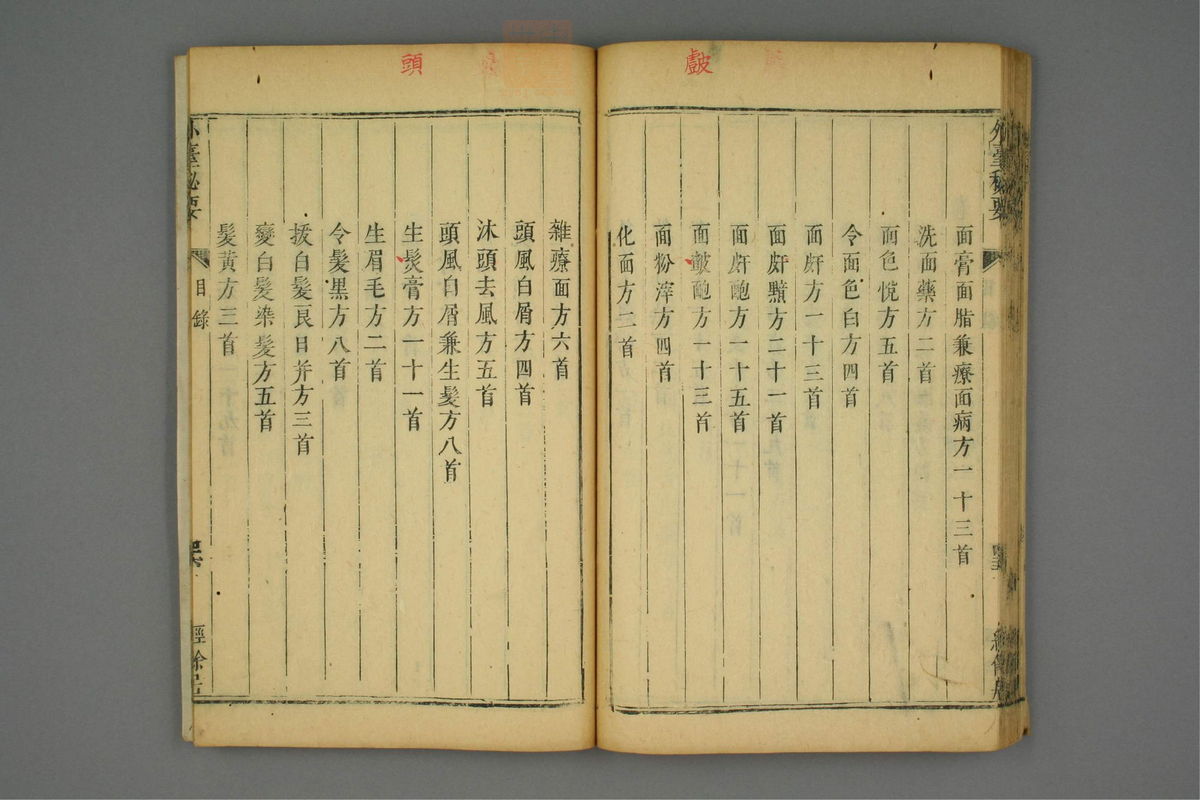 皻
面膏面脂兼療面病方一十三首
洗面藥方二首
面色悅方五首
令面色白方四首
面皯方一十三首
面皯䵳方二十一首
面皯皰方一十五首
面皻皰方一十三首
面粉滓方四首
化面方二首
外臺秘要
頭
雜療面方六首
頭風白屑方四首
沐頭去風方五首
頭風白屑兼生髮方八首
生髮膏方一十一首
生眉毛方二首
令髮黑方八首
拔白髮良日并方三首
變白髮染髮方五首
髮黃方三首
外臺秘要
目錄
經餘居